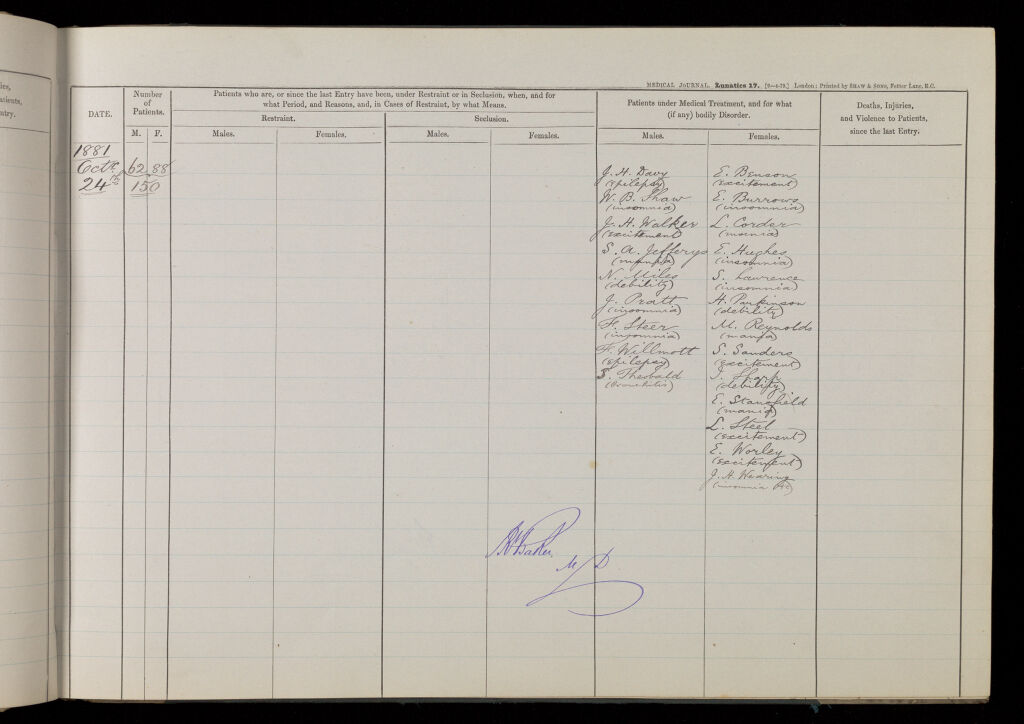 ies,
atients,
ntry.
MEDICAL JOURNAL. Lunatics 17. [9—4-79.] London: Printed by SHAW & SONS, Fetter Lane, E.C.
DATE.
Number
of
Patients.
M. F.
Patients who are, or since the last Entry have been, under Restraint or in Seclusion, when, and for
what Period, and Reasons, and, in Cases of Restraint, by what Means.
Restraint.
Seclusion.
Males. Females. Males. Females.
Patients under Medical Treatment, and for what
(if any) bodily Disorder.
Males. Females.
Deaths, Injuries,
and Violence to Patients,
since the last Entry.
1881
Octr
24th
62 88
150
J. H. Davy
(epilepsy)
W. B. Shaw
(insomnia)
J. H. Walker
(excitement)
S. A. Jefferys
(mania)
N. Miles
(debility)
J. Pratt
(insomnia)
F. Steer
(insomnia)
F. Willmott
(epilepsy)
S. Theobald
(bronchitis)
E. Benson
(excitement)
E. Burrows
(insomnia)
L. Corder
(mania)
E. Hughes
(insomnia)
S. Lawrence
(insomnia)
H. Parkinson
(debility)
M. Reynolds
(mania)
S. Sanders
(excitement)
J. Sharp
(debility)
E. Stansfield
(mania)
L. Steel
(excitement)
E. Worley
(excitement)
J. H. Wearing
(insomnia &c)
Baker.
MD